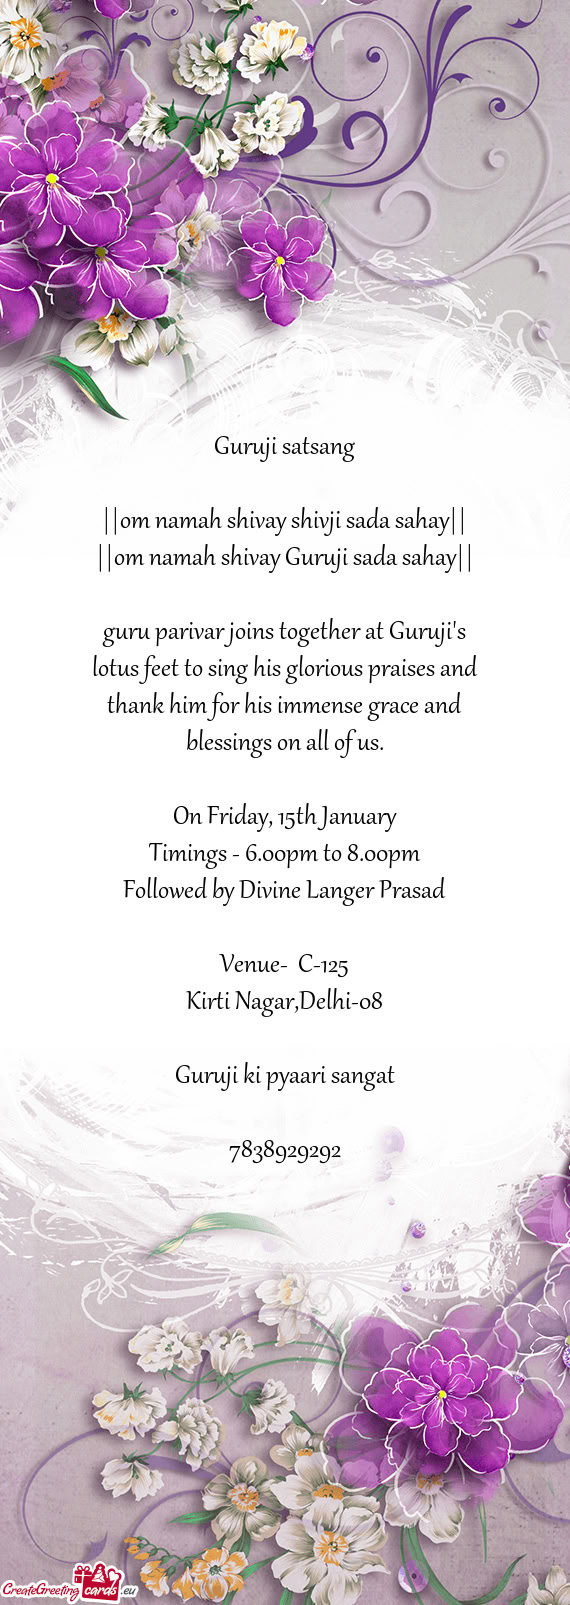 Guruji satsang
||om namah shivay shivji sada sahay||
||om namah shivay Guruji sada sahay||
guru parivar joins together at Guruji's
lotus feet to sing his glorious praises and
thank him for his immense grace and
blessings on all of us.
On Friday, 15th January
Timings - 6.00pm to 8.00pm
Followed by Divine Langer Prasad
Venue-  C-125
Kirti Nagar,Delhi-08
Guruji ki pyaari sangat
7838929292
CreateGreeting cards .eu